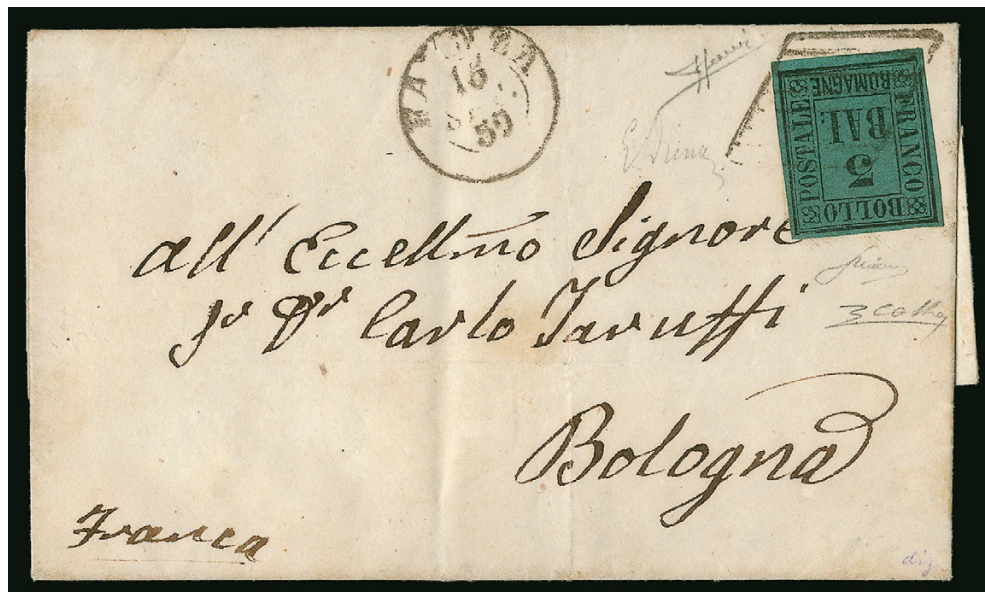 RAVENNA
15
SE
59
FRANCO
BOLLO
POSTALE
ROMAGNE
BAI.
5
all' Eccellmo Signore
Sr Dr Carlo Taruffi
Bologna
Franca
dig